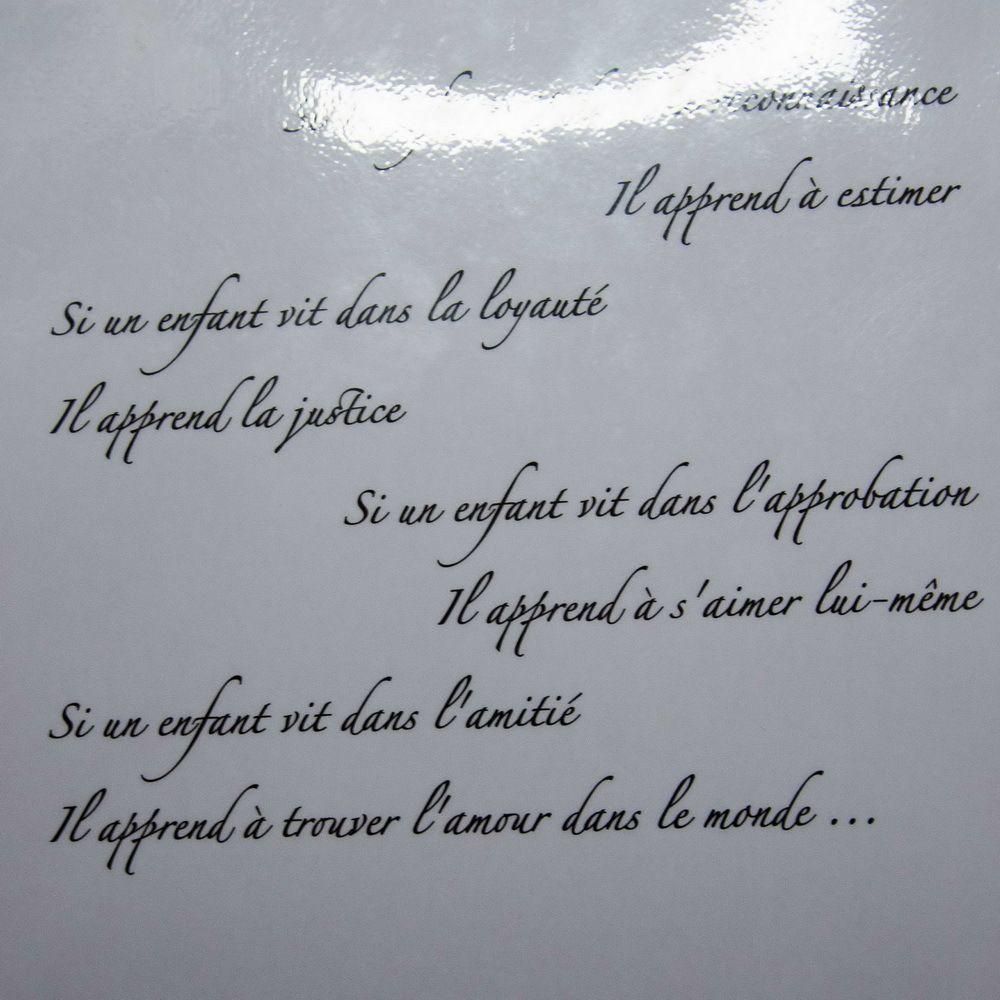 reconnaissance
Il apprend à estimer
Si un enfant vit dans la loyauté
Il apprend la justice
Si un enfant vit dans l'approbation
Il apprend à s'aimer lui-même
Si un enfant vit dans l'amitié
Il apprend à trouver l'amour dans le monde ...